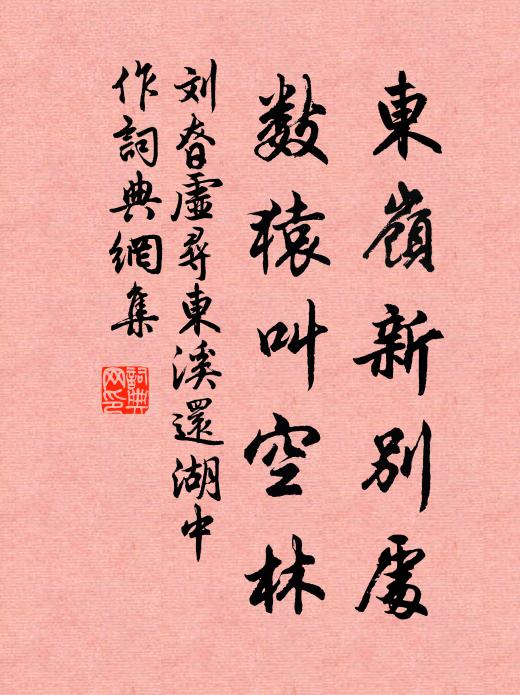 東嶺新別處
数猿叫空林
刘昚虛尋東溪還湖中
作詞典網集
詞典网印